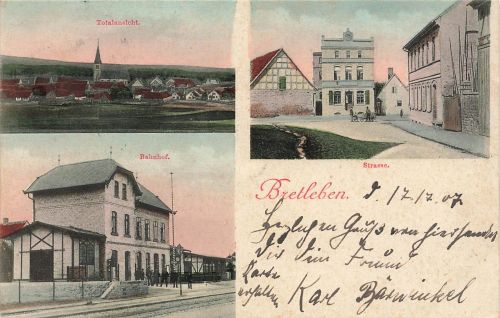 Totalansicht.
Strasse.
Bahnhof.
Bretleben. d. 17.7.07
Herzlichen Gruß von hier sendet
Dir Dein Freund
Karte
erhalten
Karl Barwinkel